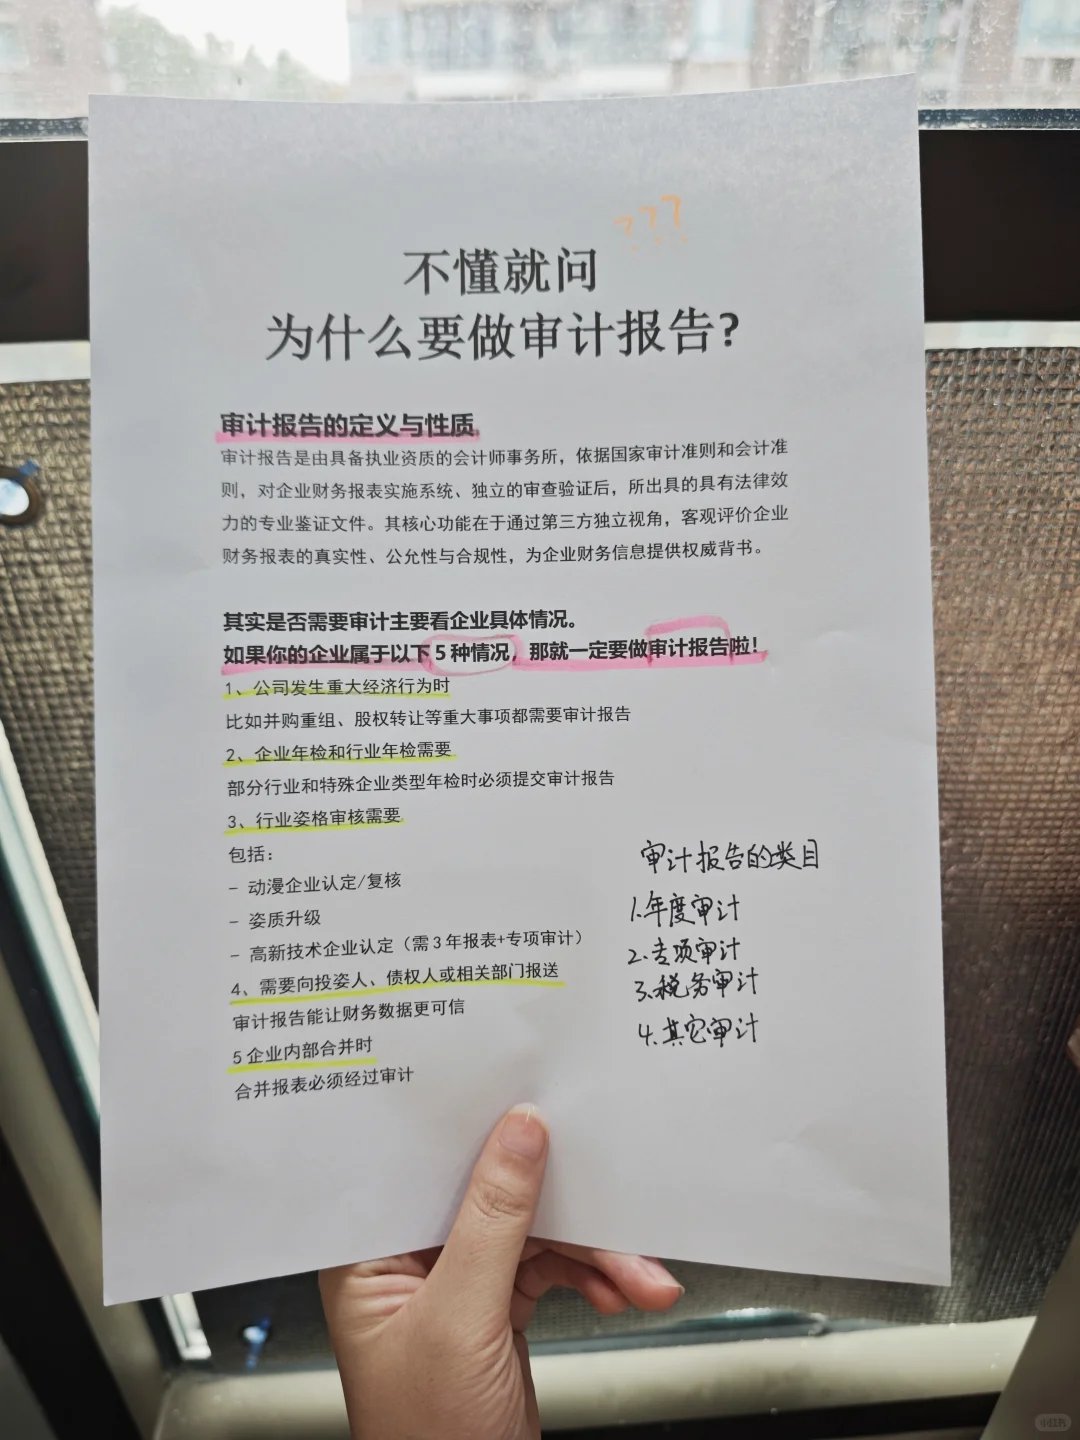 ???
不懂就问
为什么要做审计报告？
审计报告的定义与性质
审计报告是由具备执业资质的会计师事务所，依据国家审计准则和会计准
则，对企业财务报表实施系统、独立的审查验证后，所出具的具有法律效
力的专业鉴证文件。其核心功能在于通过第三方独立视角，客观评价企业
财务报表的真实性、公允性与合规性，为企业财务信息提供权威背书。
其实是否需要审计主要看企业具体情况。
如果你的企业属于以下5种情况，那就一定要做审计报告啦！
1、公司发生重大经济行为时
比如并购重组、股权转让等重大事项都需要审计报告
2、企业年检和行业年检需要
部分行业和特殊企业类型年检时必须提交审计报告
3、行业姿格审核需要
包括：
- 动漫企业认定/复核
- 姿质升级
- 高新技术企业认定（需3年报表+专项审计）
4、需要向投姿人、债权人或相关部门报送
审计报告能让财务数据更可信
5企业内部合并时
合并报表必须经过审计
审计报告的类目
1.年度审计
2.专项审计
3.税务审计
4.其它审计
小红书